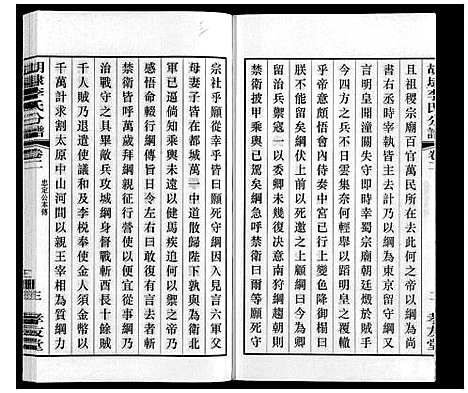 胡埭李氏分譜
卷二
三
孝友堂
且祖稷宗廟百官萬民所在去此何之將以綱為尚
書右丞東京留守綱又為上力陳所以不可去之意
言明皇聞潼關失守即時幸蜀宗廟朝廷燬於賊手
今四方之兵不日雲集奈何輕舉以蹈明皇之覆轍
乎帝意頗悟會內侍奏中宮已行上變色降御榻曰
朕不能留矣綱伏上前以死邀之上顧綱曰朕今為卿
留治兵禦寇一以委卿未幾復決意南狩綱趨朝則
禁衛披甲乘輿駕矣綱急呼禁衛曰爾等願死守
宗社乎願從幸乎皆曰願死守綱因入見言六軍父
母妻子皆在都城萬一中道散歸陛下孰與為衛北
軍已逼倘知乘輿未遠以健馬疾追何以禦之帝乃
感悟命輟行綱傳旨日令左右曰敢復有言去者斬
禁衛皆呼萬歲拜綱親征行營使以便宜從事綱乃
治戰守之具畢敵兵攻城綱身督戰斬酋長十餘賊
千人賊乃退遣使議和及李梲奉使金人須金幣以
千萬計求割太原中山河間以親王宰相為質綱力
胡埭李氏分譜
卷二
忠定公本傳
三
孝友堂